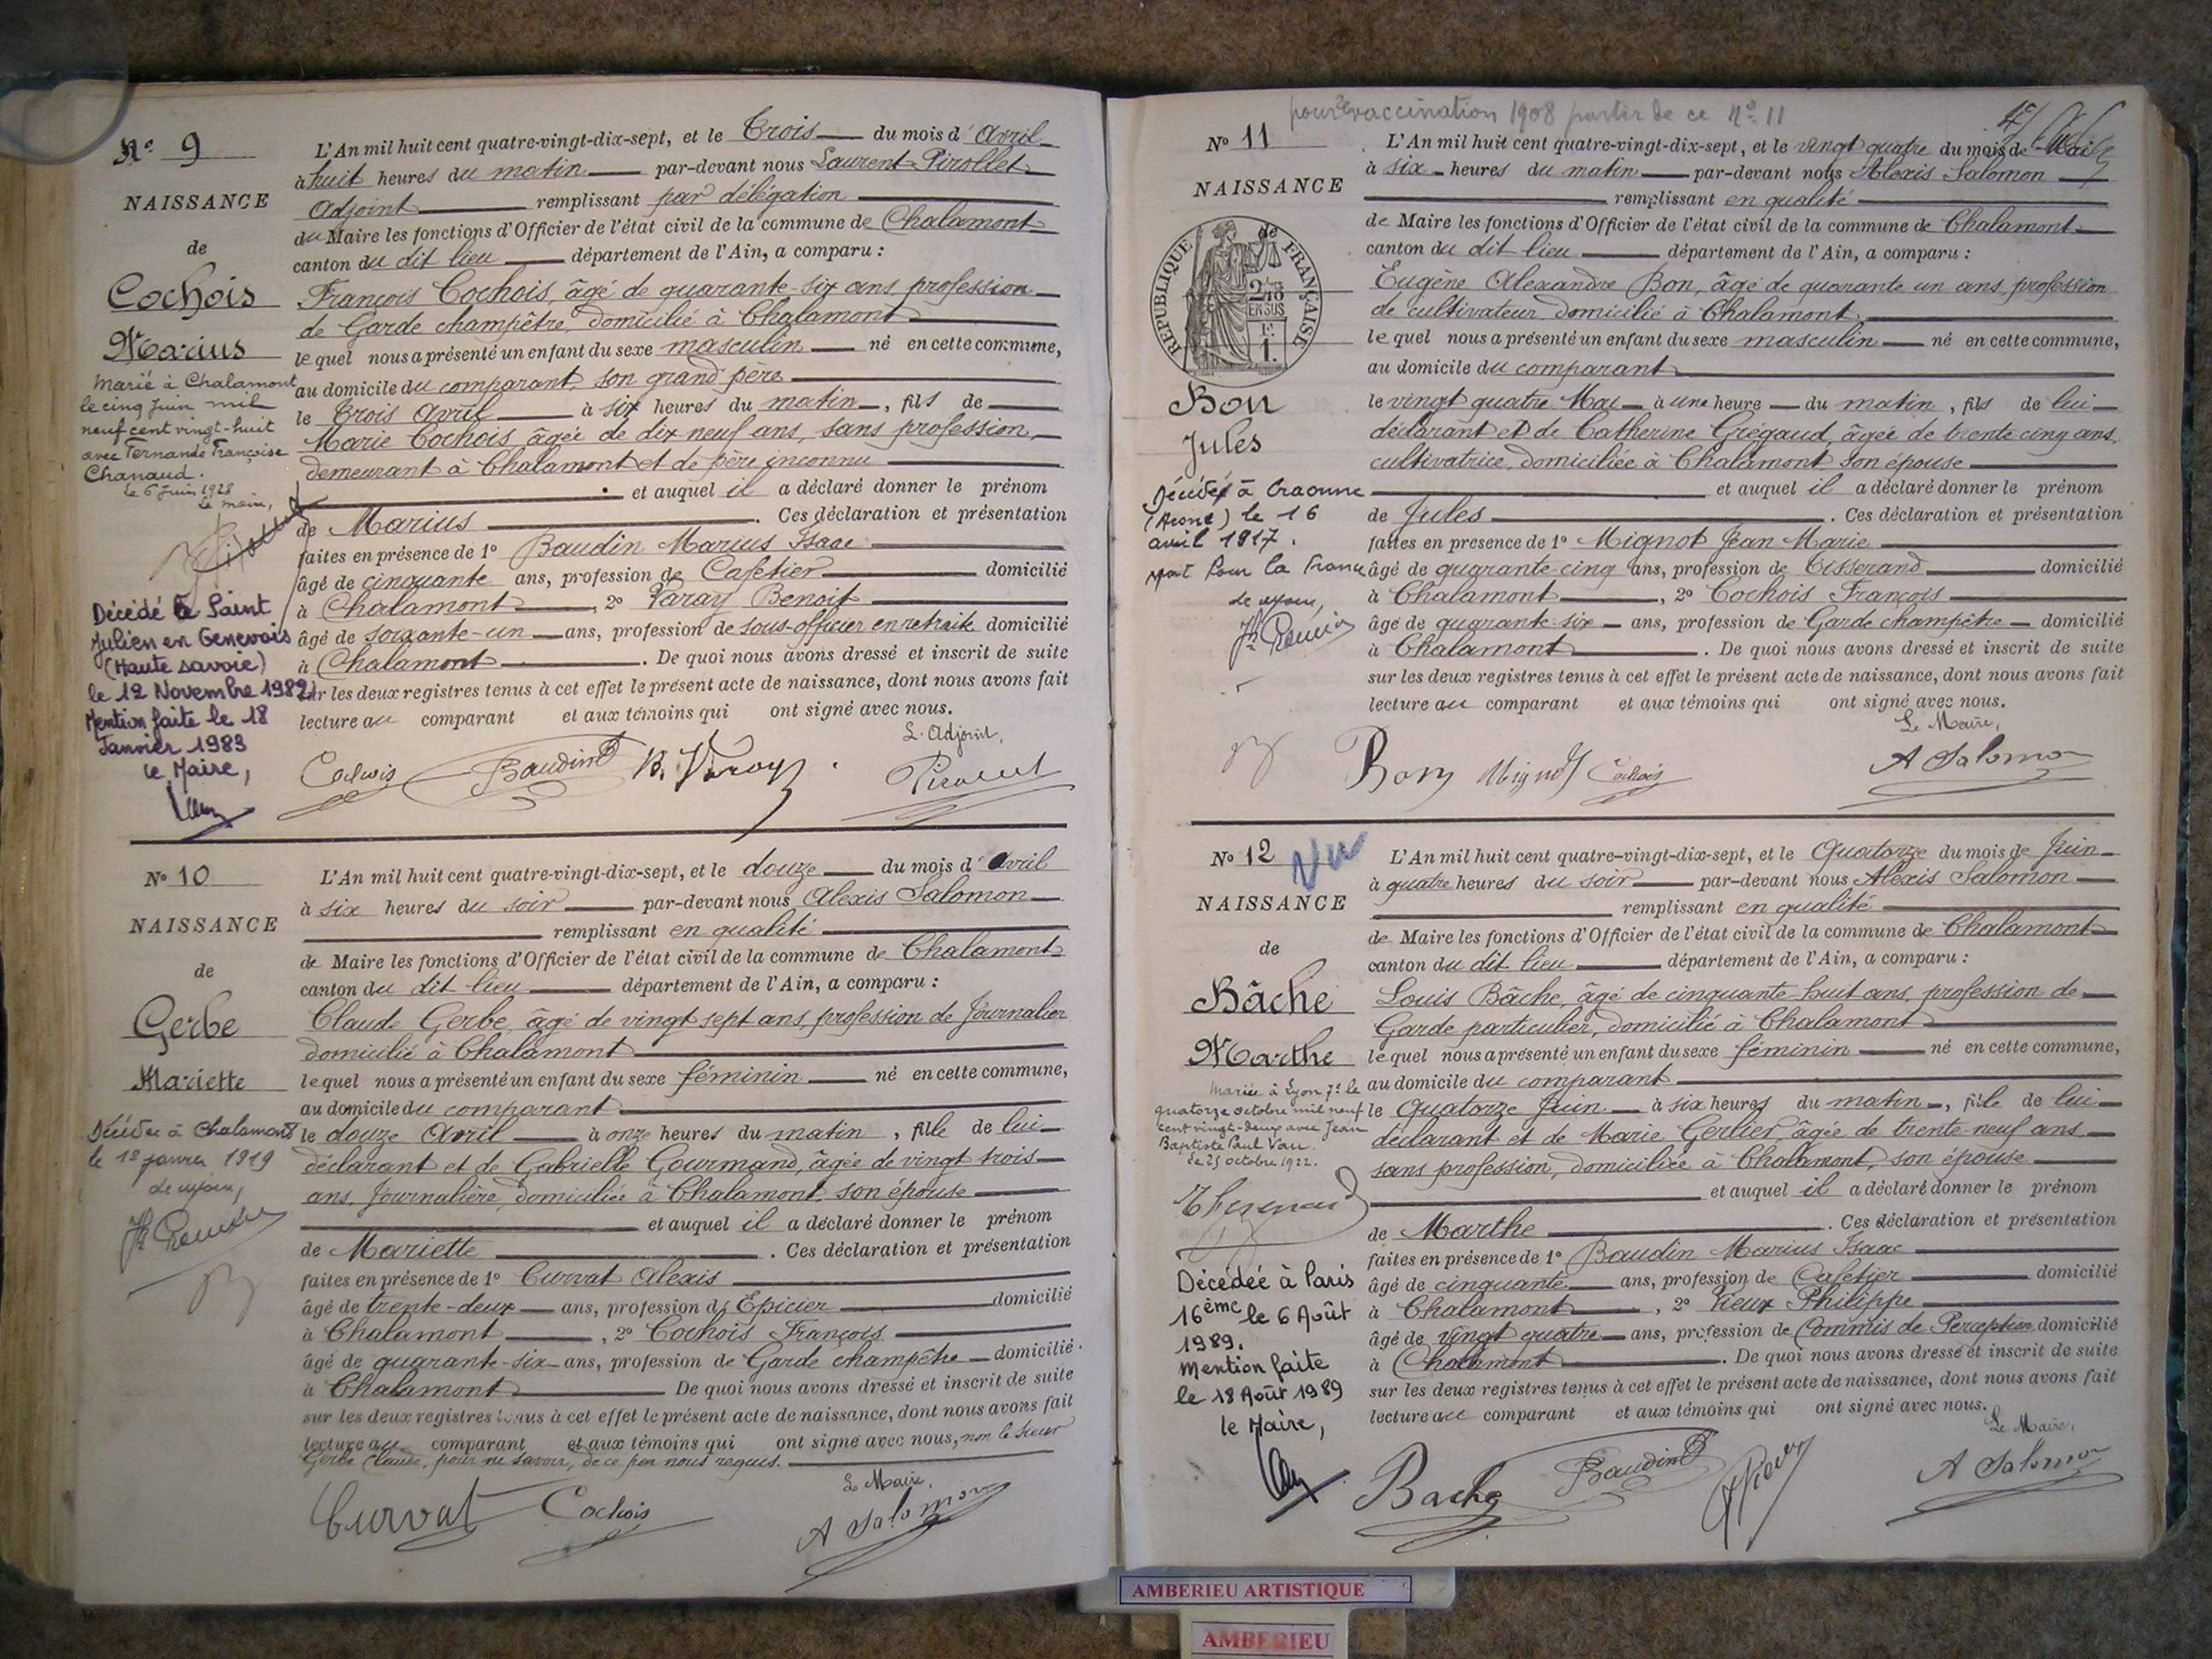 Nº 9
NAISSANCE
de
Cochois
Marius
Marié à Chalamont
le cinq Juin mil
neuf cent vingt-huit
avec Fernande Françoise
Chanaud.
Le 6 Juin 1928
Le maire,
Décédé à Saint
Julien en Genevois
(Haute Savoie)
le 12 Novembre 1982
Mention faite le 18
Janvier 1983
le Maire,
L'An mil huit cent quatre-vingt-dix-sept, et le Trois du mois d'Avril
à huit heures du matin par-devant nous Laurent Pirollet
Adjoint remplissant par délégation
du Maire les fonctions d'Officier de l'état civil de la commune de Chalamont
canton du dit lieu département de l'Ain, a comparu :
François Cochois, âgé de quarante-six ans profession
de Garde champêtre, domicilié à Chalamont
le quel nous a présenté un enfant du sexe masculin né en cette commune,
au domicile du comparant, son grand père
le Trois Avril à six heures du matin, fils de
Marie Cochois, âgée de dix neuf ans, sans profession,
demeurant à Chalamont et de père inconnu
et auquel il a déclaré donner le prénom
de Marius. Ces déclaration et présentation
faites en présence de 1º Baudin Marius Isaac
âgé de cinquante ans, profession de Cafetier domicilié
à Chalamont, 2º Varay Benoit
âgé de soixante-un ans, profession de sous-officier en retraite domicilié
à Chalamont. De quoi nous avons dressé et inscrit de suite
sur les deux registres tenus à cet effet le présent acte de naissance, dont nous avons fait
lecture au comparant et aux témoins qui ont signé avec nous.
L'Adjoint,
Cochois Baudin B. Varay Pirollet
Nº 10
NAISSANCE
de
Gerbe
Mariette
Décédée à Chalamont
le 12 janvier 1919
L'An mil huit cent quatre-vingt-dix-sept, et le douze du mois d'Avril
à six heures du soir par-devant nous Alexis Salomon
remplissant en qualité
de Maire les fonctions d'Officier de l'état civil de la commune de Chalamont
canton du dit lieu département de l'Ain, a comparu :
Claude Gerbe, âgé de vingt sept ans, profession de Journalier
domicilié à Chalamont
le quel nous a présenté un enfant du sexe féminin né en cette commune,
au domicile du comparant
le douze Avril à onze heures du matin, fille de lui
déclarant et de Gabrielle Gourmand, âgée de vingt trois
ans, Journalière, domiciliée à Chalamont, son épouse
et auquel il a déclaré donner le prénom
de Mariette. Ces déclaration et présentation
faites en présence de 1º Curvat Alexis
âgé de trente-deux ans, profession d'Epicier domicilié
à Chalamont, 2º Cochois François
âgé de quarante-six ans, profession de Garde champêtre domicilié
à Chalamont De quoi nous avons dressé et inscrit de suite
sur les deux registres tenus à cet effet le présent acte de naissance, dont nous avons fait
lecture au comparant et aux témoins qui ont signé avec nous, non le sieur
Gerbe Claude, pour ne savoir, de ce par nous requis.
Le Maire,
Curvat Cochois A Salomon
pour revaccination 1908 partir de ce Nº 11
Nº 11
NAISSANCE
de
RÉPUBLIQUE FRANÇAISE
Bon
Jules
Décédé à Craonne
(Aisne) le 16
avril 1917.
Mort Pour la France
L'An mil huit cent quatre-vingt-dix-sept, et le vingt quatre du mois de Mai
à six heures du matin par-devant nous Alexis Salomon
remplissant en qualité
de Maire les fonctions d'Officier de l'état civil de la commune de Chalamont
canton du dit lieu département de l'Ain, a comparu :
Eugène Alexandre Bon, âgé de quarante un ans, profession
de cultivateur domicilié à Chalamont
le quel nous a présenté un enfant du sexe masculin né en cette commune,
au domicile du comparant
le vingt quatre Mai à une heure du matin, fils de lui
déclarant et de Catherine Grégaud, âgée de trente cinq ans,
cultivatrice, domiciliée à Chalamont son épouse
et auquel il a déclaré donner le prénom
de Jules. Ces déclaration et présentation
faites en présence de 1º Mignot Jean Marie
âgé de quarante cinq ans, profession de Tisserand domicilié
à Chalamont, 2º Cochois François
âgé de quarante-six ans, profession de Garde champêtre domicilié
à Chalamont. De quoi nous avons dressé et inscrit de suite
sur les deux registres tenus à cet effet le présent acte de naissance, dont nous avons fait
lecture au comparant et aux témoins qui ont signé avec nous.
Le Maire,
Bon Mignot Cochois A Salomon
Nº 12
Vu
NAISSANCE
de
Bâche
Marthe
Mariée à Lyon 7e le
quatorze octobre mil neuf
cent vingt-deux avec Jean
Baptiste Paul Vau.
Le 25 octobre 1922.
Décédée à Paris
16ème le 6 Août
1989.
Mention faite
le 18 Août 1989
le Maire,
L'An mil huit cent quatre-vingt-dix-sept, et le Quatorze du mois de Juin
à quatre heures du soir par-devant nous Alexis Salomon
remplissant en qualité
de Maire les fonctions d'Officier de l'état civil de la commune de Chalamont
canton du dit lieu département de l'Ain, a comparu :
Louis Bâche, âgé de cinquante-huit ans, profession de
Garde particulier, domicilié à Chalamont
le quel nous a présenté un enfant du sexe féminin né en cette commune,
au domicile du comparant
le Quatorze Juin à six heures du matin, fille de lui
déclarant et de Marie Gerlier, âgée de trente-neuf ans
sans profession, domiciliée à Chalamont, son épouse
et auquel il a déclaré donner le prénom
de Marthe. Ces déclaration et présentation
faites en présence de 1º Baudin Marius Isaac
âgé de cinquante ans, profession de Cafetier domicilié
à Chalamont, 2º Vieux Philippe
âgé de vingt quatre ans, profession de Commis de Perception domicilié
à Chalamont. De quoi nous avons dressé et inscrit de suite
sur les deux registres tenus à cet effet le présent acte de naissance, dont nous avons fait
lecture au comparant et aux témoins qui ont signé avec nous.
Le Maire,
Bache Baudin A Salomon
AMBERIEU ARTISTIQUE
AMBERIEU